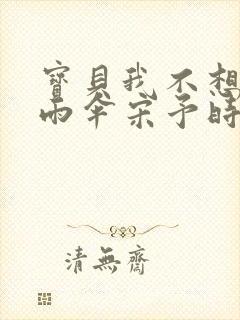 寶貝我不想
雨傘宋予時
清無齋